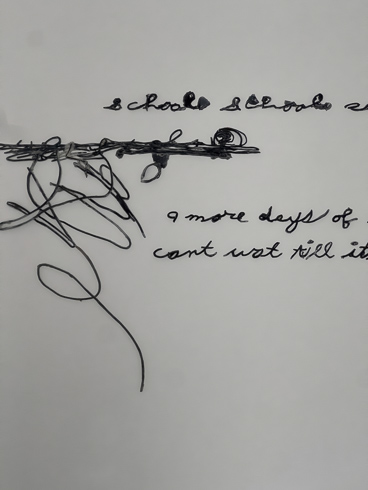 schools schools s
9 more days of
cant wat till its